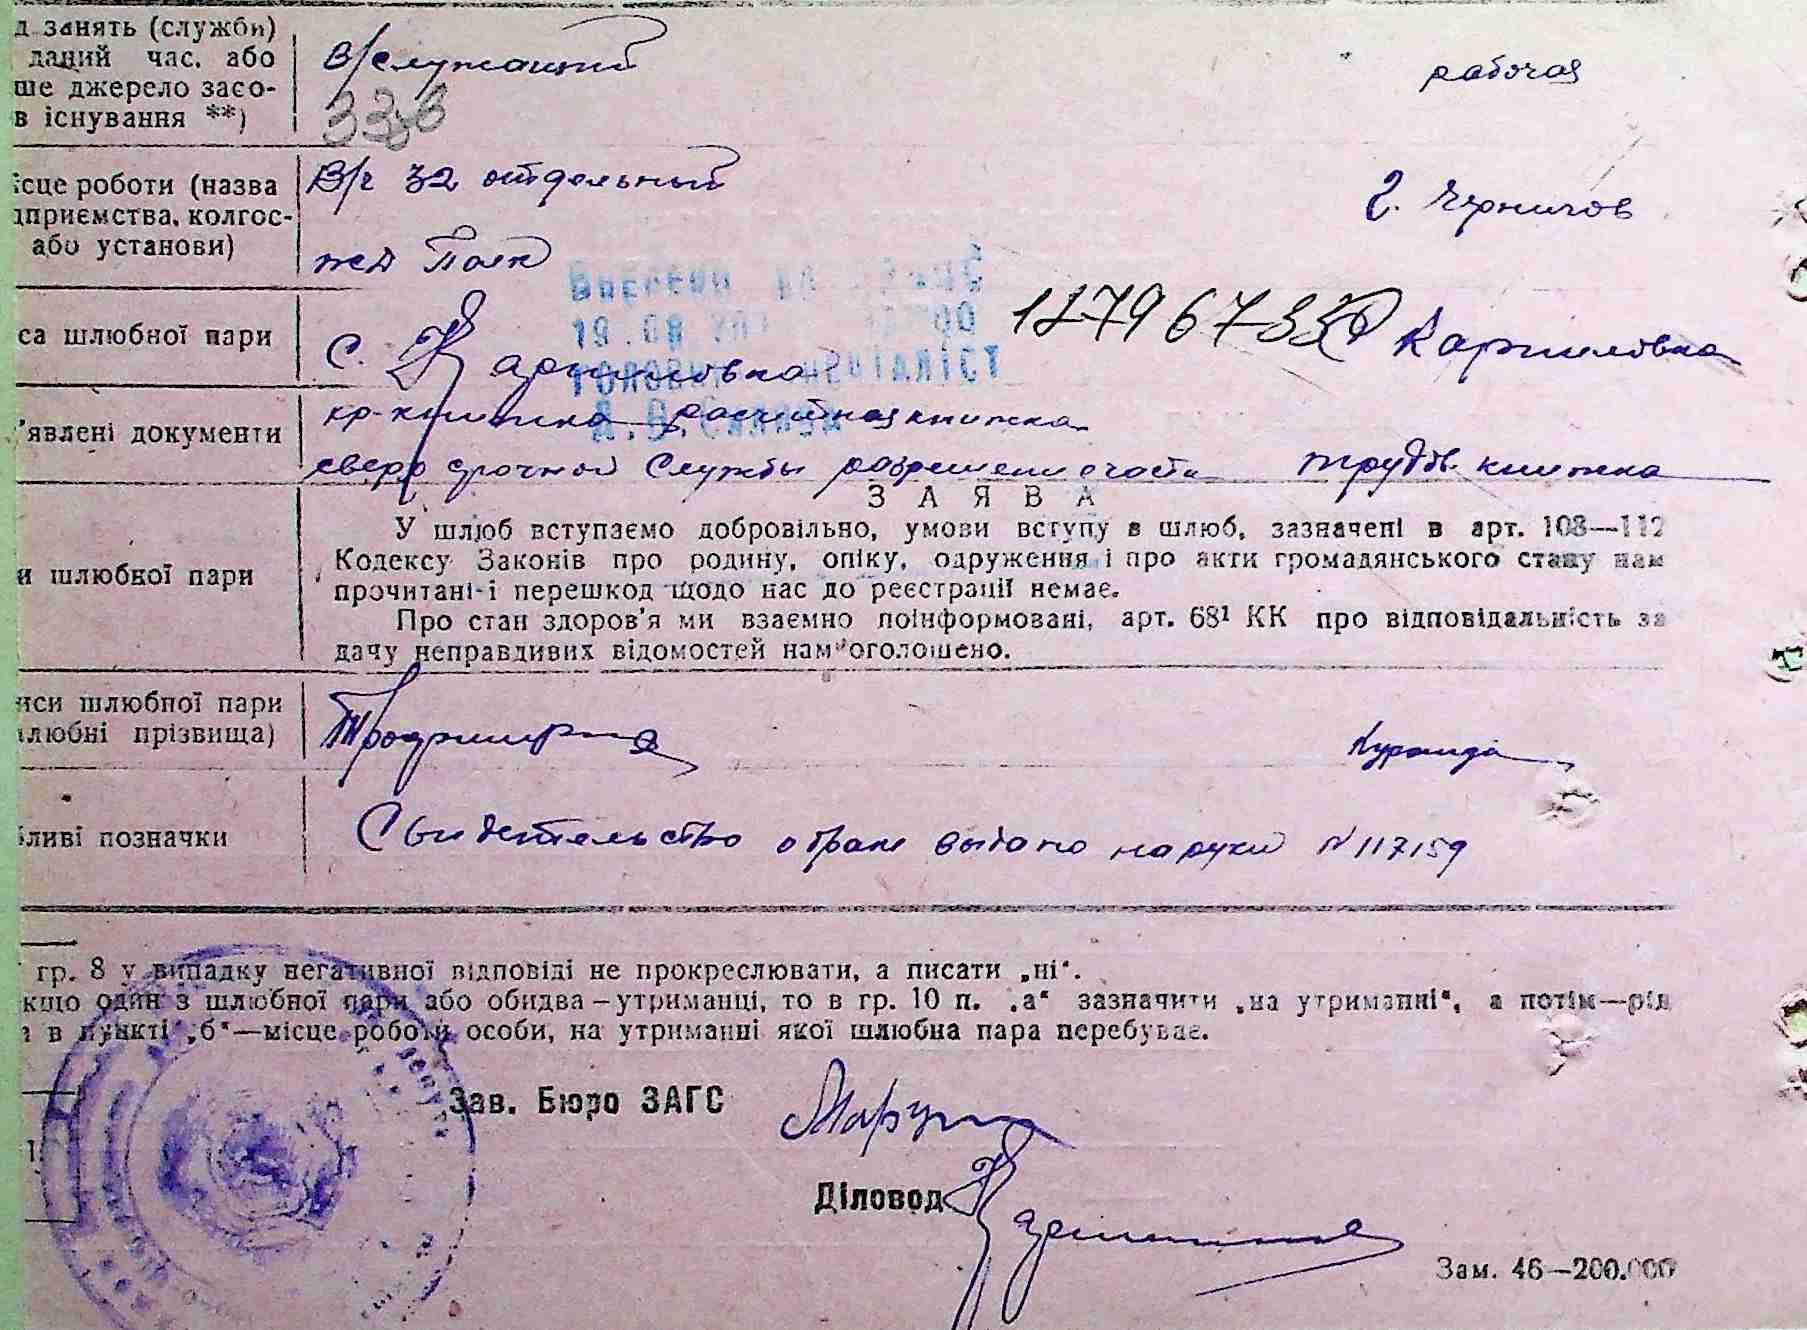 д занять (служби)
даний час. або
ше джерело засо-
в існування **)
В/служащий
рабочая
338
ісце роботи (назва
дприємства, колгос-
або установи)
В/ч 32 отдельный
жед Полк
г. Чернигов
са шлюбної пари
С. Карпиловка
Карпиловка
19.08
ГОЛОВНИЙ СПЕЦІАЛІСТ
'явлені документи
кр-книжка расчетная книжка
сверх срочной Службы разрешение части
трудов. книжка
З А Я В А
и шлюбної пари
У шлюб вступаємо добровільно, умови вступу в шлюб, зазначені в арт. 108—112
Кодексу Законів про родину, опіку, одруження і про акти громадянського стану нам
прочитані і перешкод щодо нас до реєстрації немає.
Про стан здоров'я ми взаємно поінформовані, арт. 68¹ КК про відповідальність за
дачу неправдивих відомостей нам оголошено.
иси шлюбної пари
шлюбні прізвища)
бливі позначки
Свидетельство о браке выдано на руки N 117159
гр. 8 у випадку негативної відповіді не прокреслювати, а писати „ні“.
кщо один з шлюбної пари або обидва—утриманці, то в гр. 10 п. „а“ зазначити „на утриманні“, а потім—рід
в пункті „б“—місце роботи особи, на утриманні якої шлюбна пара перебуває.
Зав. Бюро ЗАГС
Діловод
Зам. 46—200.000